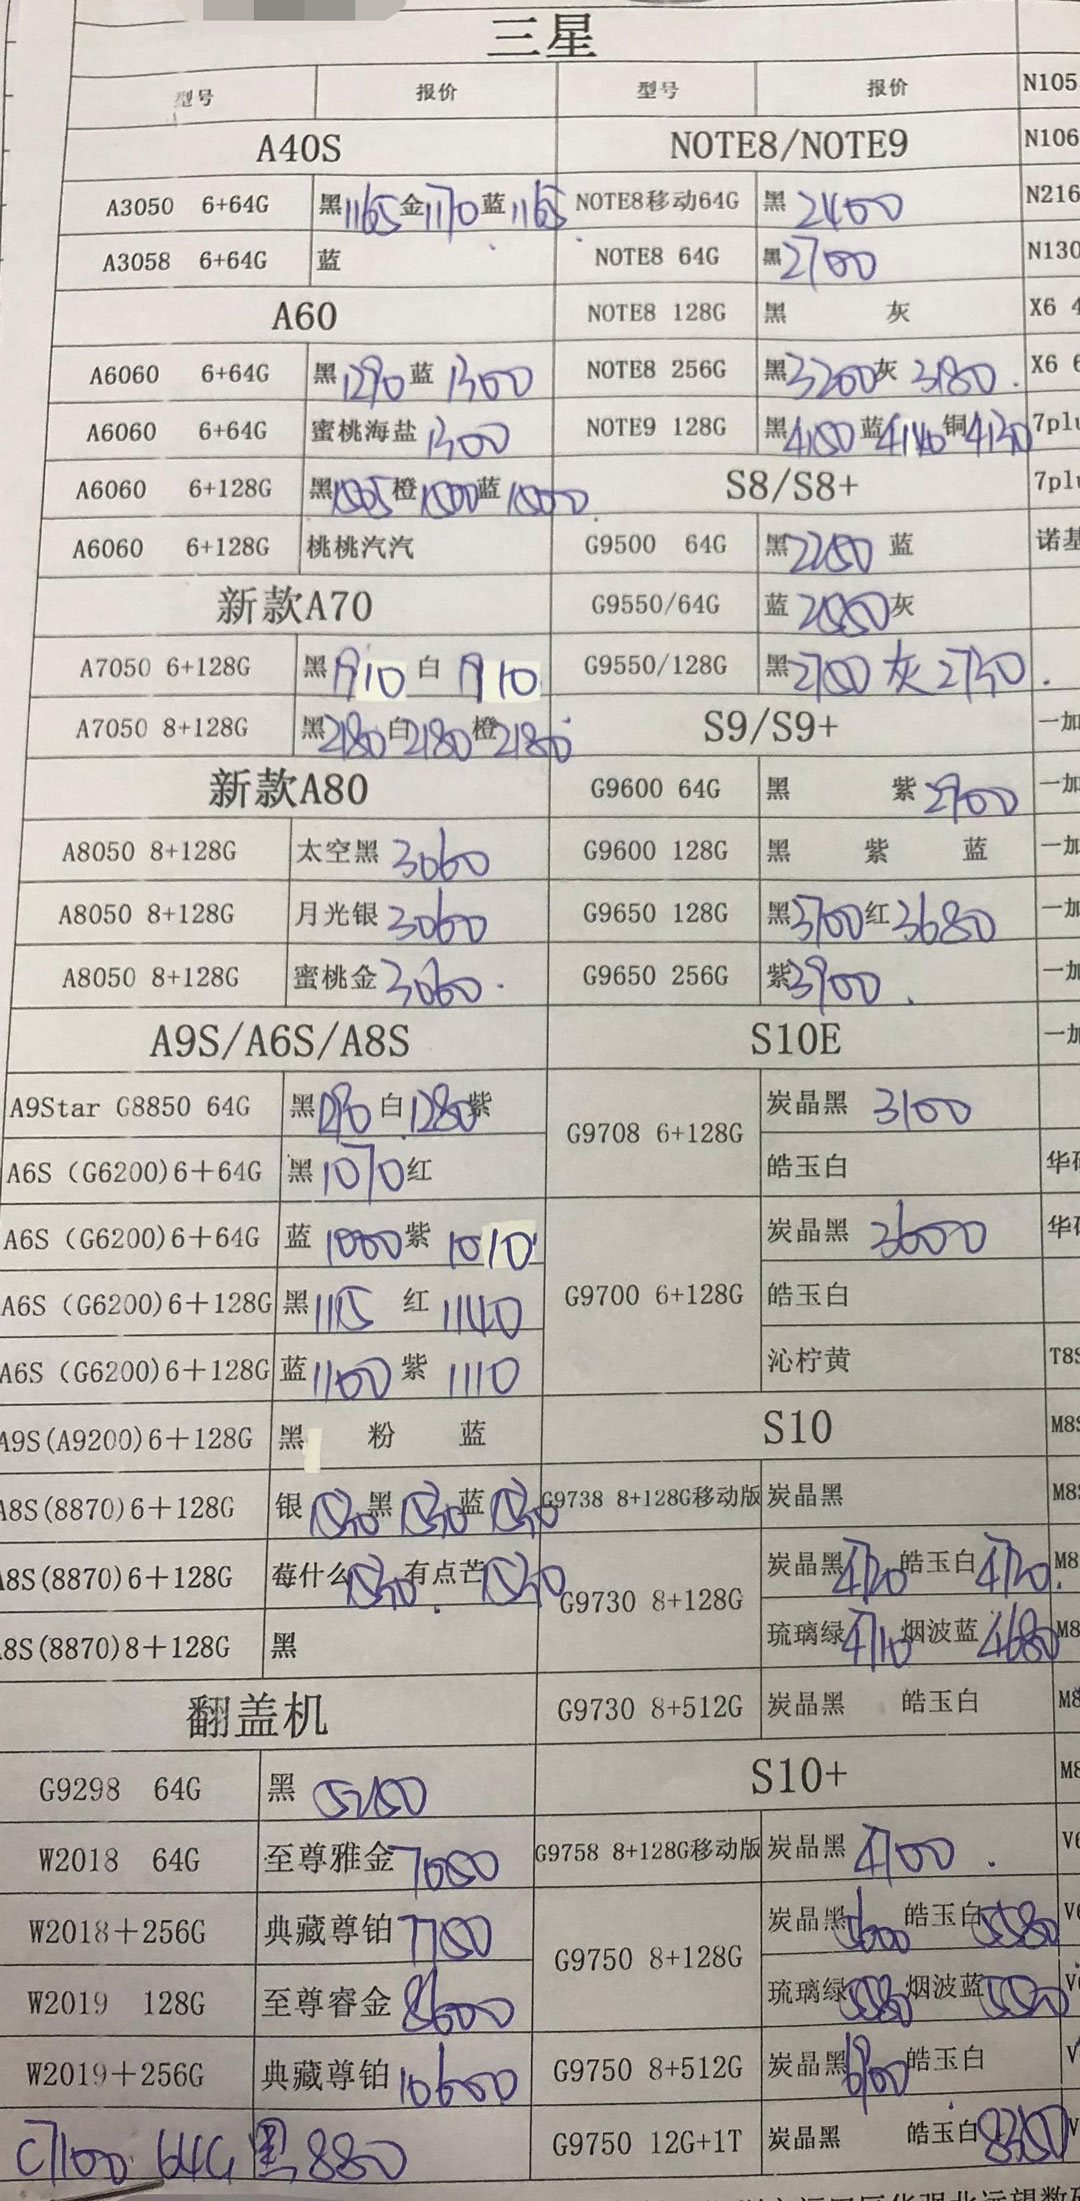 三星
型号 报价 型号 报价 N105
A40S NOTE8/NOTE9 N106
A3050 6+64G 黑1165金1170蓝1165 NOTE8移动64G 黑2400 N216
A3058 6+64G 蓝 NOTE8 64G 黑2700 N130
A60 NOTE8 128G 黑 灰 X6 4
A6060 6+64G 黑1290蓝1300 NOTE8 256G 黑3200灰3180 X6 6
A6060 6+64G 蜜桃海盐1300 NOTE9 128G 黑4150蓝4140铜4130 7plu
A6060 6+128G 黑1505橙1500蓝1500 S8/S8+ 7plu
A6060 6+128G 桃桃汽汽 G9500 64G 黑2250 蓝 诺基
新款A70 G9550/64G 蓝2550灰
A7050 6+128G 黑1910 白1910 G9550/128G 黑2700灰2730
A7050 8+128G 黑2180白2180橙2180 S9/S9+ 一加
新款A80 G9600 64G 黑 紫2900 一加
A8050 8+128G 太空黑3060 G9600 128G 黑 紫 蓝 一加
A8050 8+128G 月光银3060 G9650 128G 黑3700红3680 一加
A8050 8+128G 蜜桃金3060 G9650 256G 紫3900 一加
A9S/A6S/A8S S10E 一加
A9Star G8850 64G 黑1290白1280紫 G9708 6+128G 炭晶黑 3100
A6S（G6200)6＋64G 黑1070红 皓玉白 华硕
A6S（G6200)6＋64G 蓝1000紫1010 G9700 6+128G 炭晶黑 3600 华硕
A6S（G6200)6＋128G 黑1115 红1140 皓玉白
A6S（G6200)6＋128G 蓝1100紫1110 沁柠黄 T8S
A9S(A9200)6＋128G 黑 粉 蓝 S10 M8S
A8S(8870)6＋128G 银1530黑1530蓝1530 G9738 8+128G移动版 炭晶黑 M8S
A8S(8870)6＋128G 莓什么1530有点芒1530 G9730 8+128G 炭晶黑4720皓玉白4720 M8
A8S(8870)8＋128G 黑 琉璃绿4710烟波蓝4680 M8
翻盖机 G9730 8+512G 炭晶黑 皓玉白 M8
G9298 64G 黑 5250 S10+ M8
W2018 64G 至尊雅金7050 G9758 8+128G移动版 炭晶黑 4700 V6
W2018＋256G 典藏尊铂7750 G9750 8+128G 炭晶黑5600皓玉白5580
W2019 128G 至尊睿金8600 琉璃绿5580烟波蓝5550
W2019＋256G 典藏尊铂10600 G9750 8+512G 炭晶黑6900皓玉白
C7100 64G 黑880 G9750 12G+1T 炭晶黑 皓玉白8350